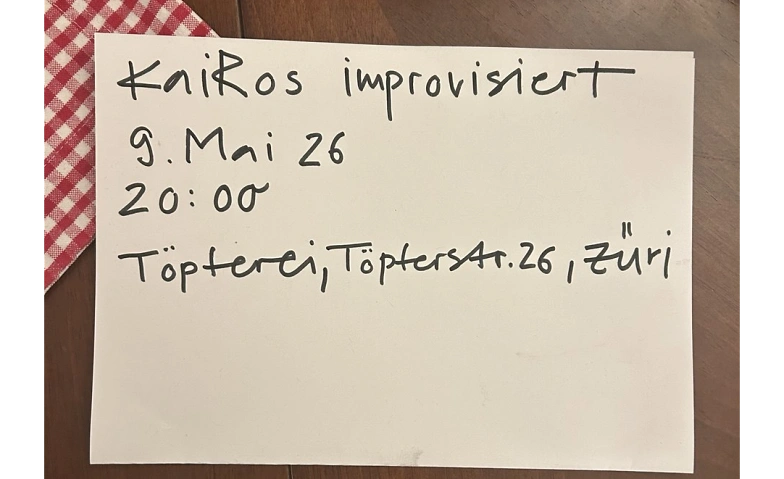 KaiRos improvisiert
9. Mai 26
20:00
Töpferei, Töpferstr. 26, Züri